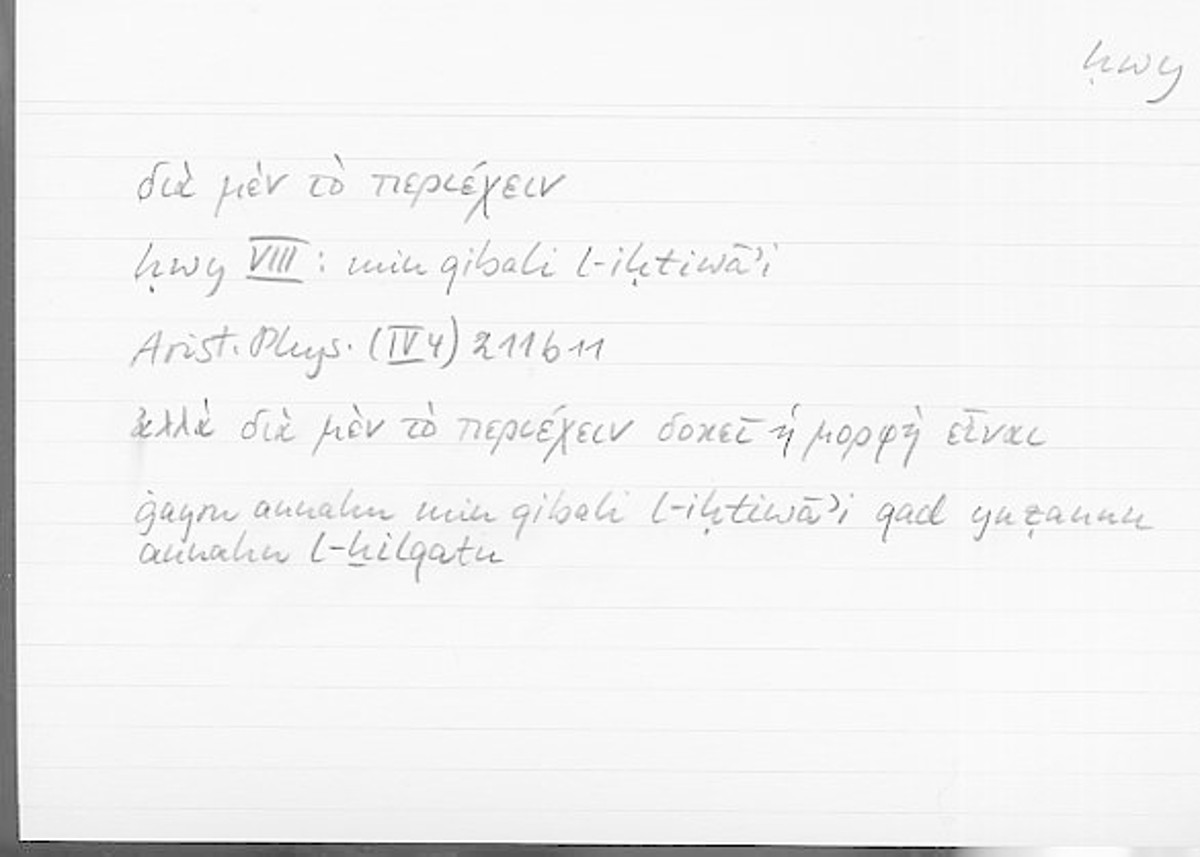 ḥwy
διὰ μὲν τὸ περιέχειν
ḥwy VIII : min qibali l-iḥtiwāʾi
Arist. Phys. (IV 4) 211 b 11
ἀλλὰ διὰ μὲν τὸ περιέχειν δοκεῖ ἡ μορφὴ εἶναι
ġayru annahu min qibali l-iḥtiwāʾi qad yuẓannu
annahu l-ḫilqatu